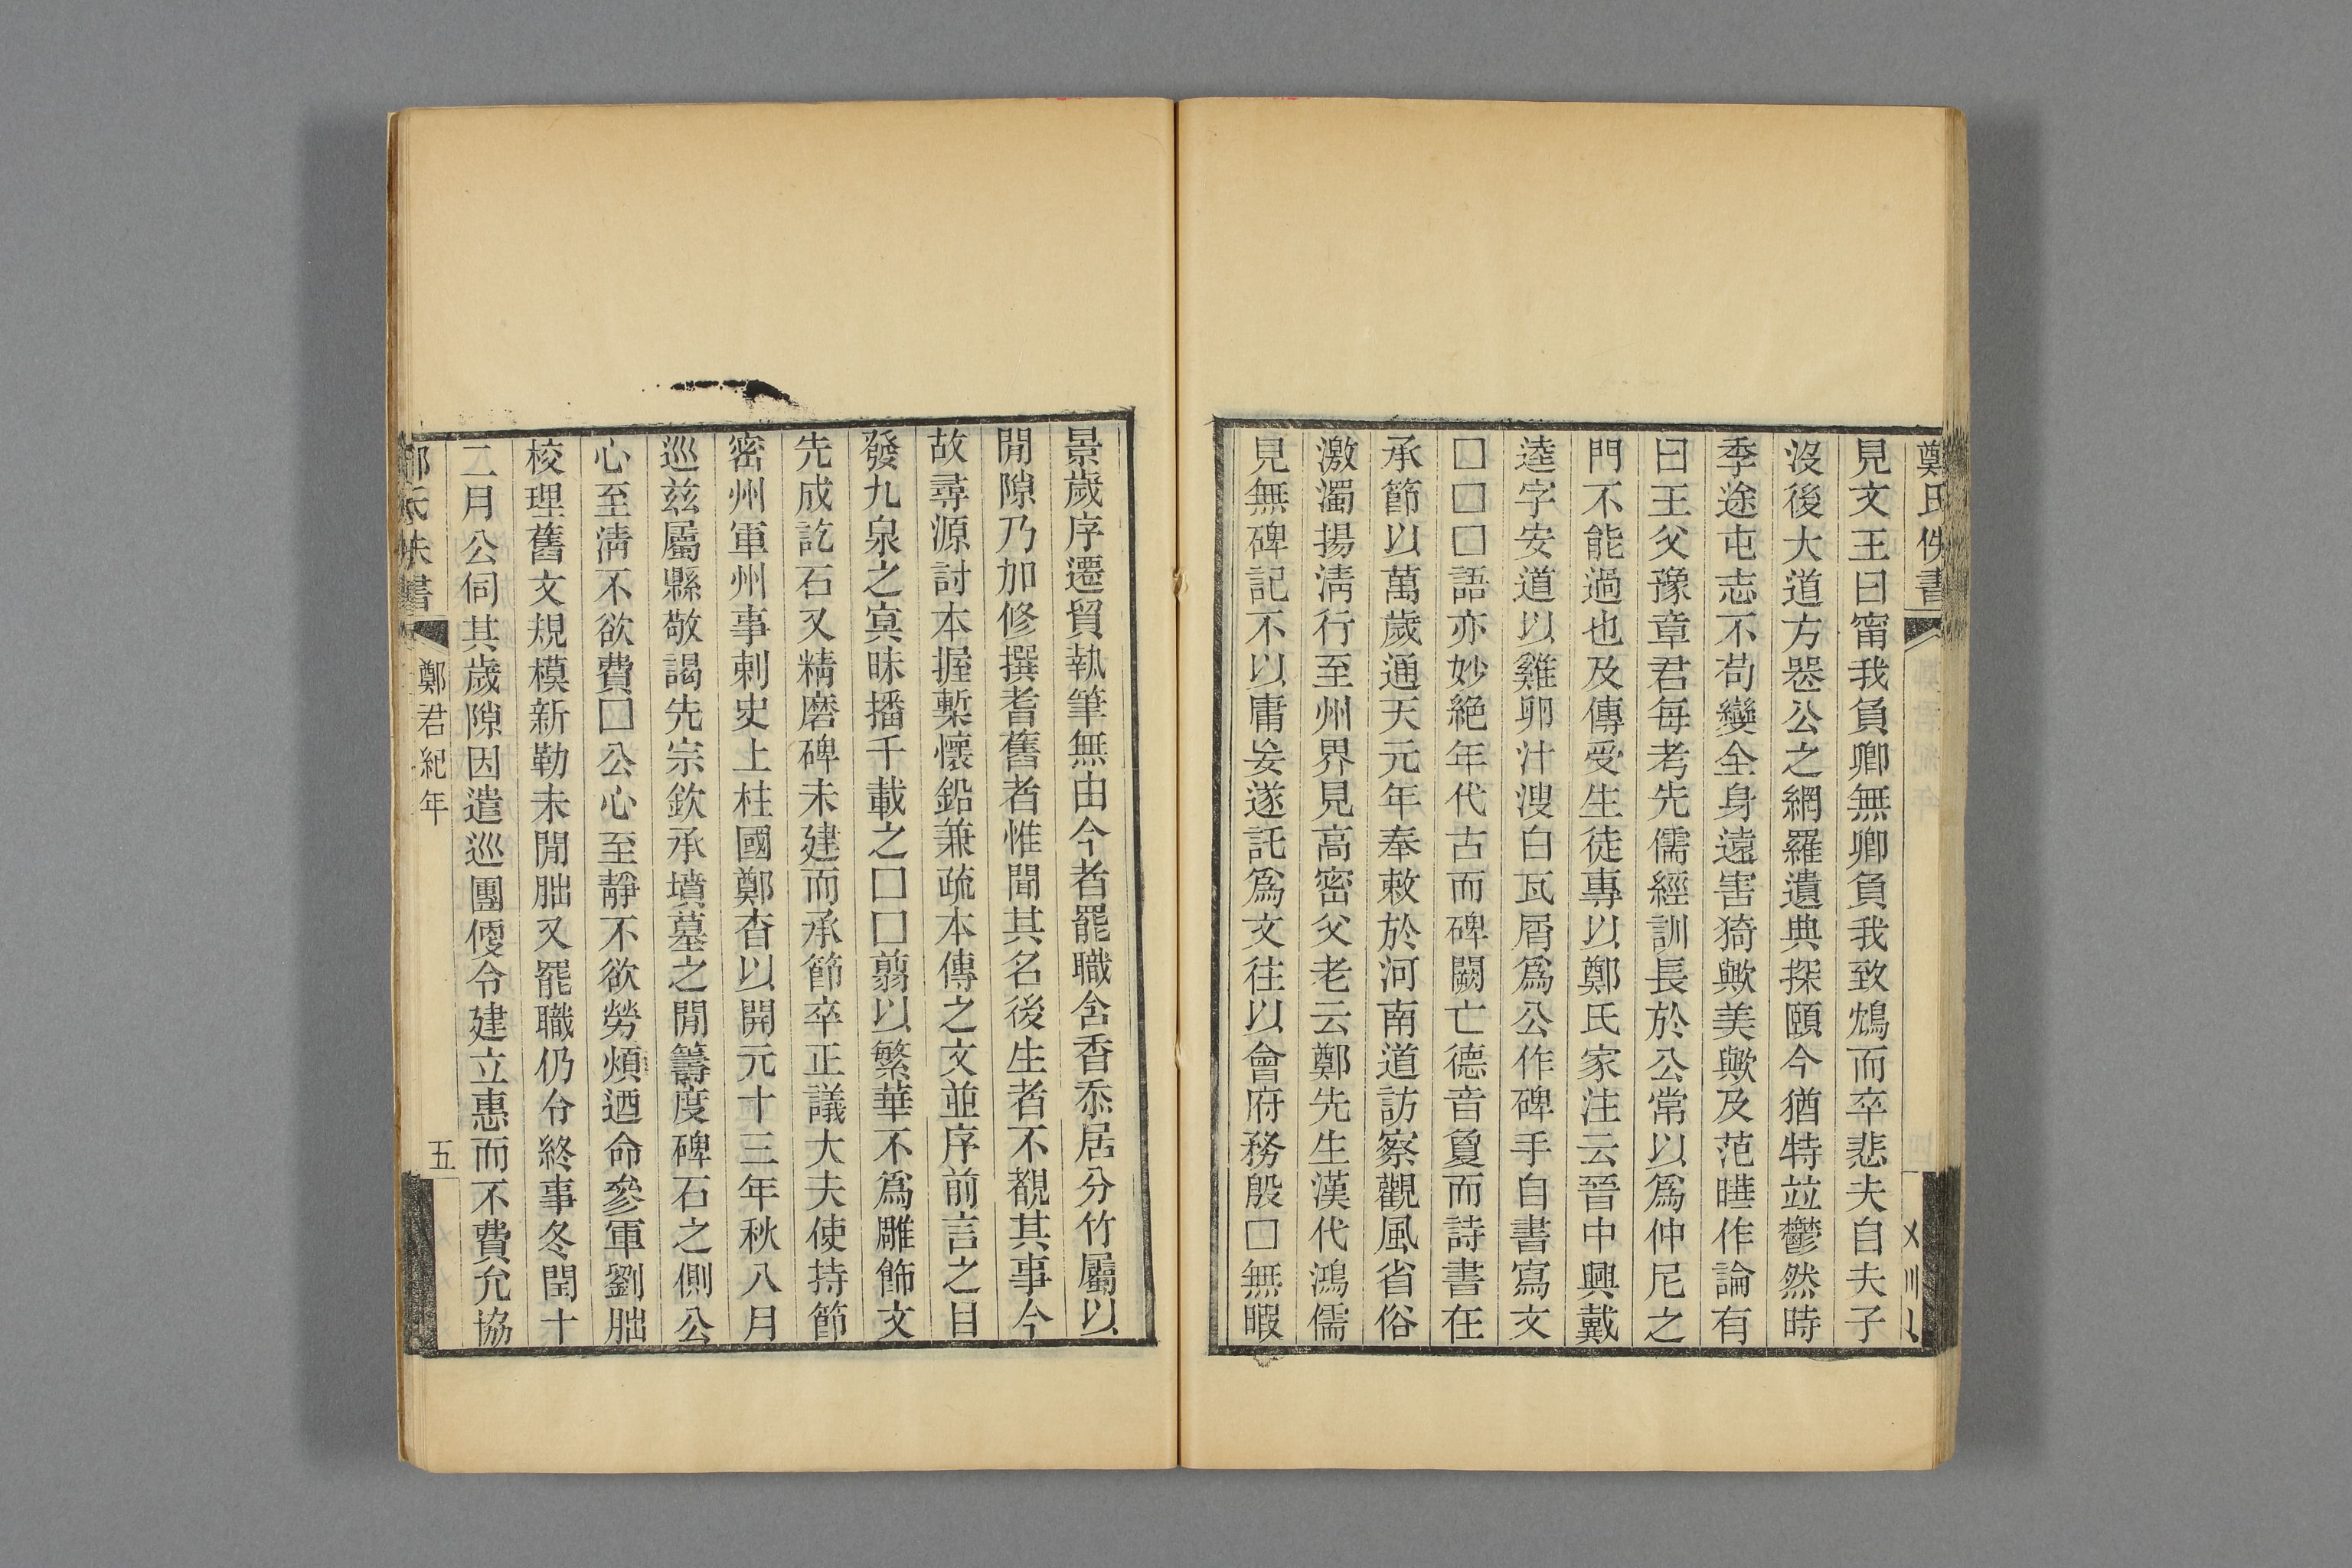 鄭氏佚書
見文王曰甯我負卿無卿負我致鴆而卒悲夫自夫子
沒後大道方喪公之網羅遺典探頤今猶特竝鬱然時
季途屯志不苟變全身遠害猗歟美歟及范曄作論有
曰王父豫章君每考先儒經訓長於公常以爲仲尼之
門不能過也及傳受生徒專以鄭氏家注云晉中興戴
逵字安道以雞卵汁溲白瓦屑爲公作碑手自書寫文
□□□語亦妙絕年代古而碑闕亡德音敻而詩書在
承節以萬歲通天元年奉敕於河南道訪察觀風省俗
激濁揚淸行至州界見高密父老云鄭先生漢代鴻儒
見無碑記不以庸妄遂託爲文往以會府務殷□無暇
景歲序遷貿執筆無由今者罷職含香忝居分竹屬以
閒隙乃加修撰耆舊者惟聞其名後生者不覩其事今
故尋源討本握槧懷鉛兼疏本傳之文並序前言之目
發九泉之冥昧播千載之□□翦以繁華不爲雕飾文
先成訖石又精磨碑未建而承節卒正議大夫使持節
密州軍州事刺史上柱國鄭杳以開元十三年秋八月
巡玆屬縣敬謁先宗欽承墳墓之閒籌度碑石之側公
心至淸不欲費□公心至靜不欲勞煩迺命參軍劉朏
校理舊文規模新勒未閒朏又罷職仍令終事冬閏十
二月公伺其歲隙因遣巡團便令建立惠而不費允協
鄭氏佚書
鄭君紀年
五